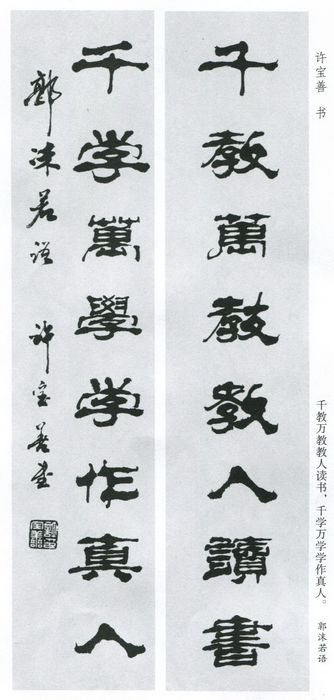 许宝善 书
千教万教教人读书，千学万学学作真人。 郭沫若语
千教萬教教人讀書
千学萬學学作真人
郭沫若语 许宝善书